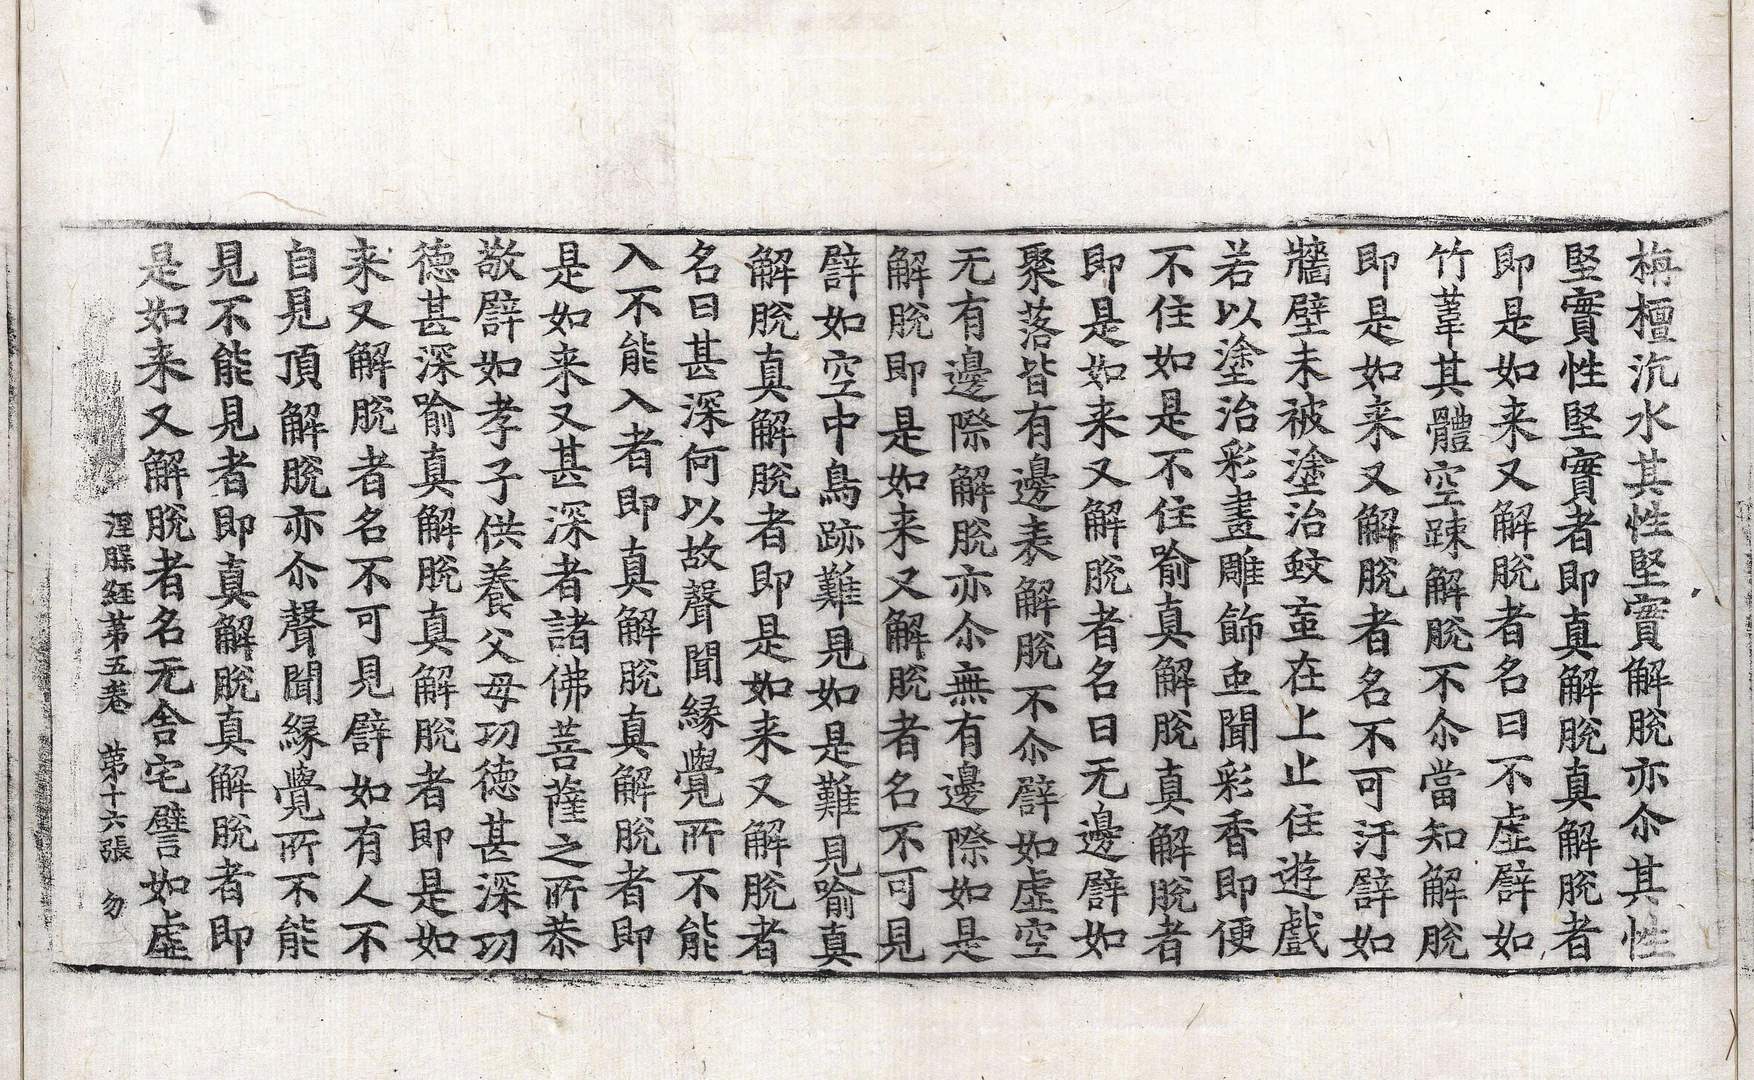 栴檀沉水其性堅實解脫亦尒其性
堅實性堅實者即真解脫真解脫者
即是如来又解脫者名曰不虛譬如
竹葦其體空踈解脫不尒當知解脫
即是如来又解脫者名不可汙譬如
牆壁未被塗治蚊䖝在上止住遊戲
若以塗治彩畫雕飾䖝聞彩香即便
不住如是不住喻真解脫真解脫者
即是如来又解脫者名曰无邊譬如
聚落皆有邊表解脫不尒譬如虛空
无有邊際解脫亦尒無有邊際如是
解脫即是如来又解脫者名不可見
譬如空中鳥跡難見如是難見喻真
解脫真解脫者即是如来又解脫者
名曰甚深何以故聲聞緣覺所不能
入不能入者即真解脫真解脫者即
是如来又甚深者諸佛菩薩之所恭
敬譬如孝子供養父母功德甚深功
德甚深喻真解脫真解脫者即是如
来又解脫者名不可見譬如有人不
自見頂解脫亦尒聲聞緣覺所不能
見不能見者即真解脫真解脫者即
是如来又解脫者名无舍宅譬如虛
涅槃経苐五卷　苐十六張　勿